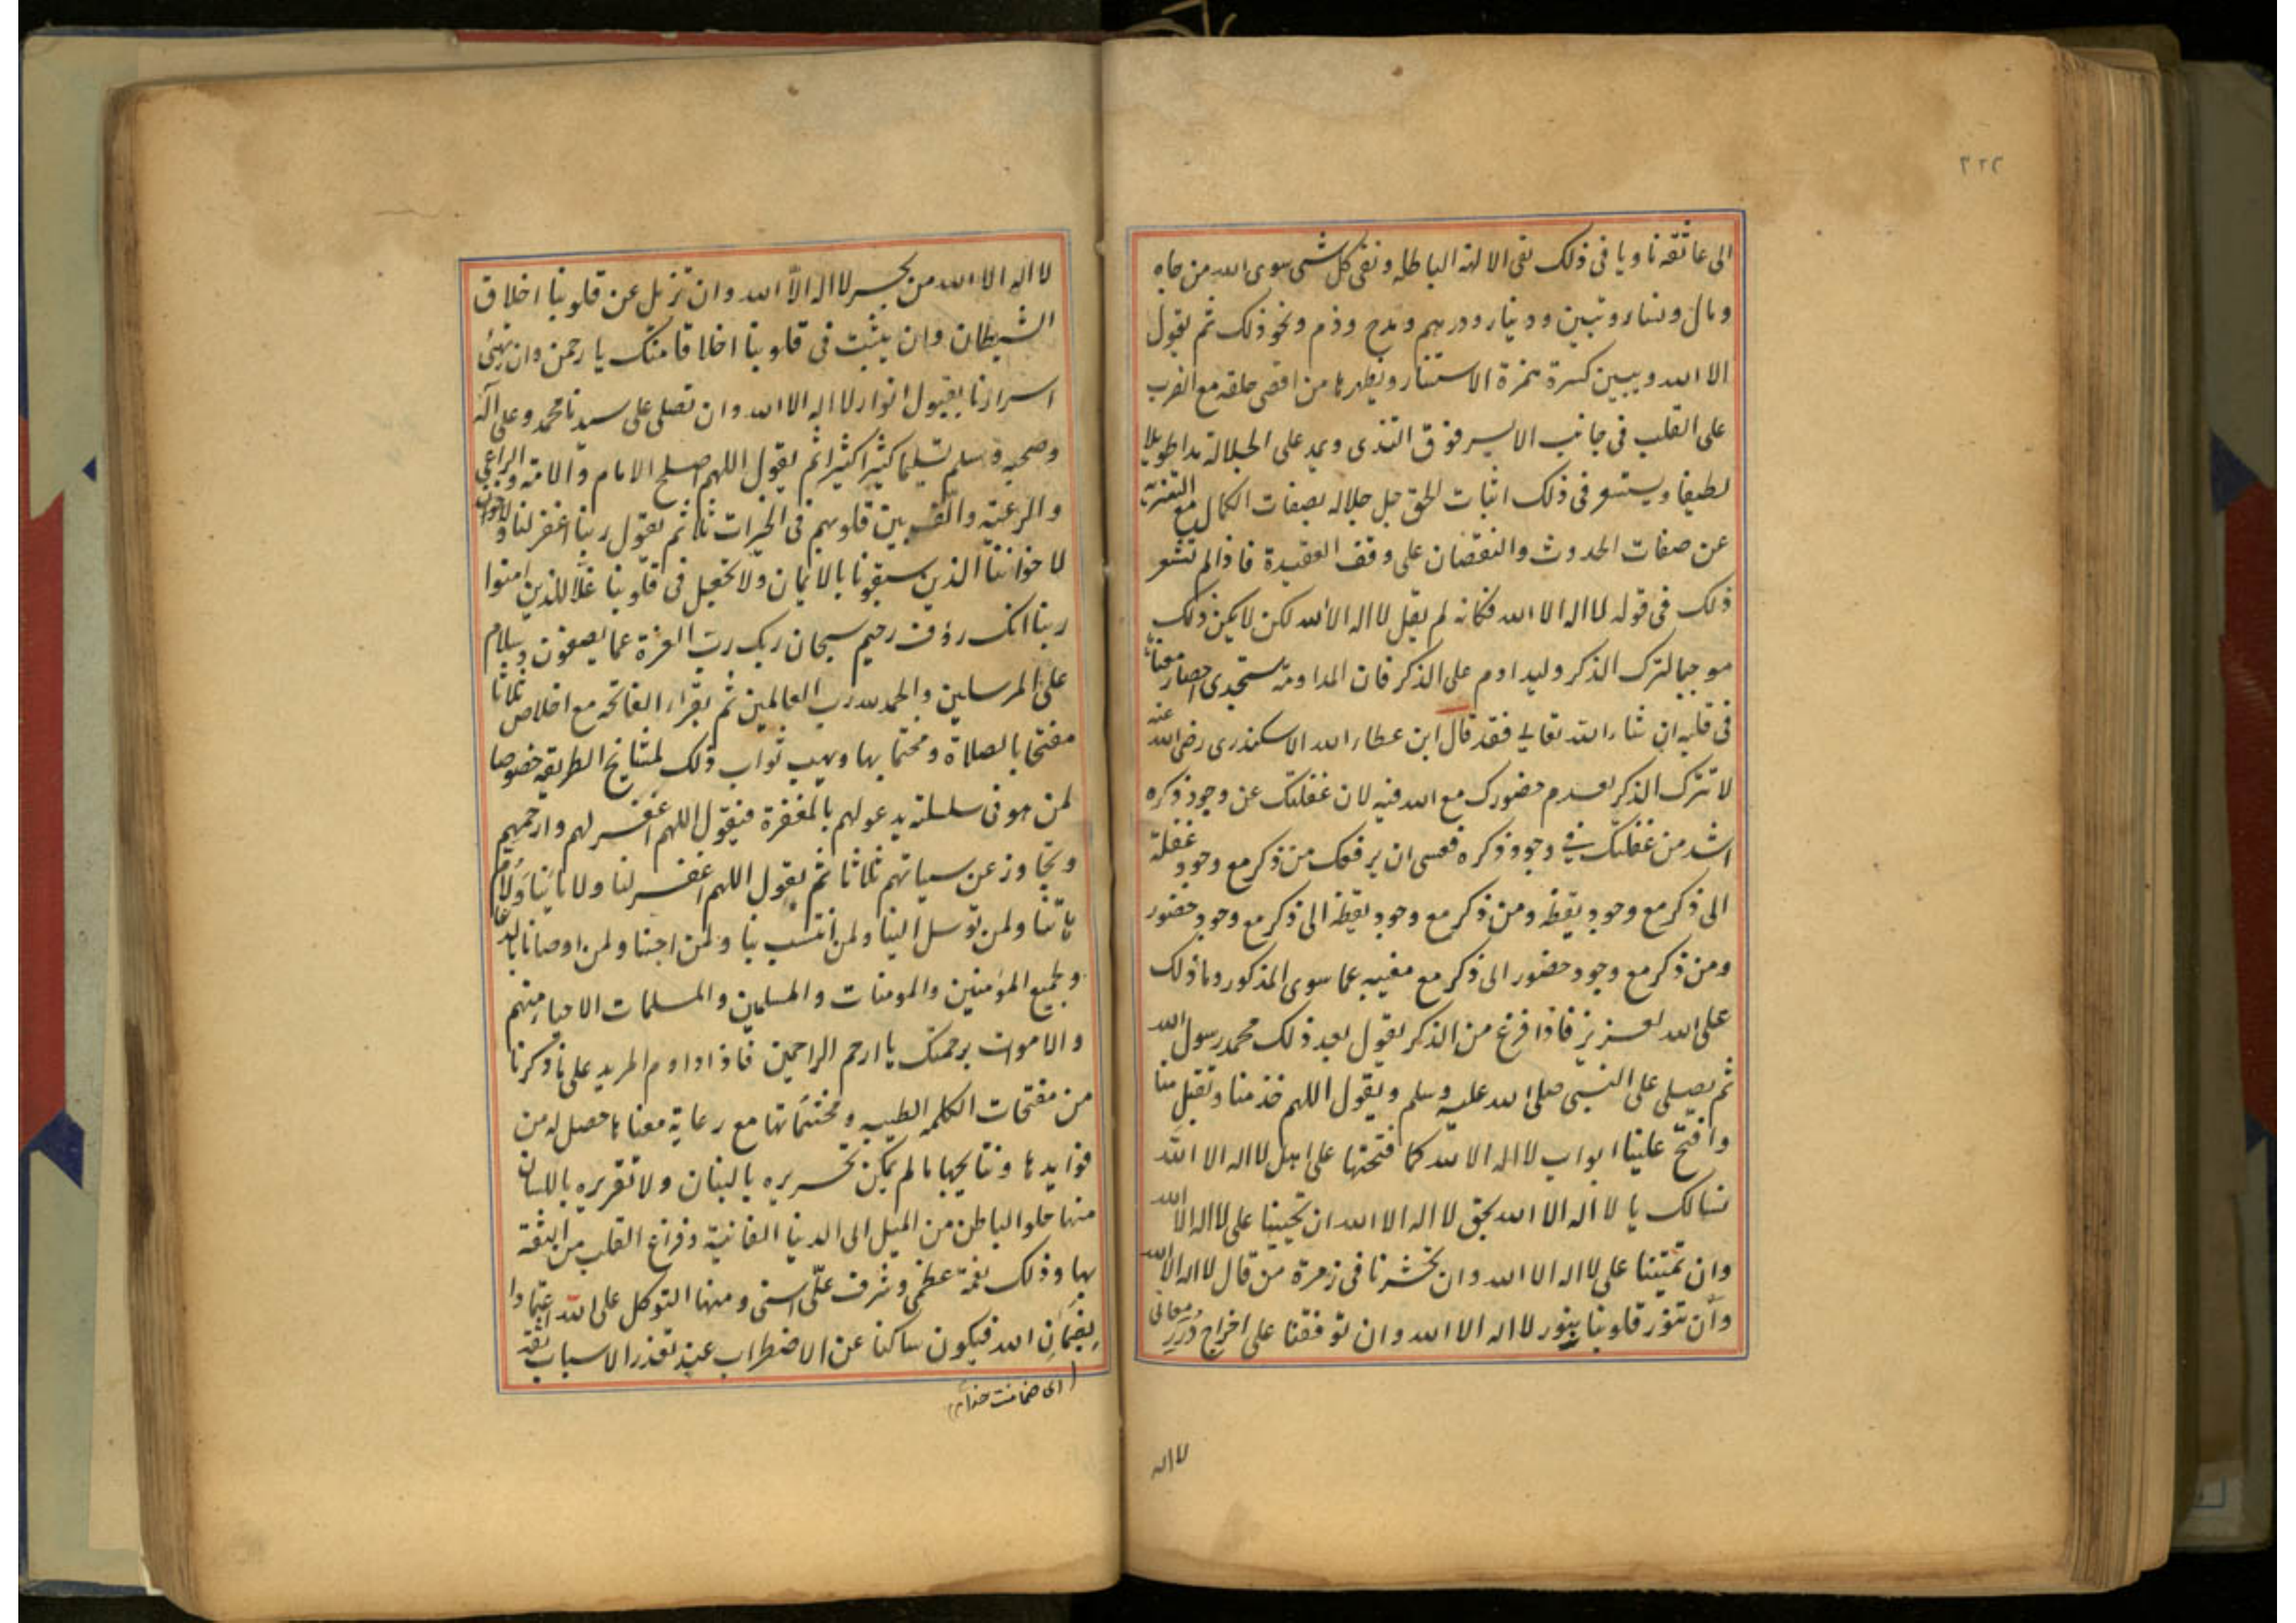 ٣٢٢
الى عاتقه ناويا فى ذلك نفى الالهة الباطلة ونفى كل شى سوى الله من جاه
ومال ونساء وبنين ودينار ودرهم ومدح وذم ونحو ذلك ثم يقول
الا الله ويبين كسرة همزة الاستثناء ويظهرها من اقصى حلقه مع الضرب
على القلب فى جانب الايسر فوق الثدى ويمد على الجلالة مدا طويلا
لطيفا ويستشعر فى ذلك اثبات الحق جل جلاله بصفات الكمال مع التنزيه
عن صفات الحدوث والنقصان على وقف العقيدة فاذا لم تشعر
ذلك فى قوله لا اله الا الله فكانه لم يقل لا اله الا الله لكن لا يكن ذلك
موجبا لترك الذكر وليداوم على الذكر فان المداومة ستجدى احضار معناها
فى قلبه ان شاء الله تعالى فقد قال ابن عطاء الله الاسكندرى رضى الله عنه
لا تترك الذكر لعدم حضورك مع الله فيه لان غفلتك عن وجود ذكره
اشد من غفلتك فى وجود ذكره فعسى ان يرفعك من ذكر مع وجود غفلة
الى ذكر مع وجود يقظة ومن ذكر مع وجود يقظة الى ذكر مع وجود حضور
ومن ذكر مع وجود حضور الى ذكر مع مغيبه عما سوى المذكور وما ذلك
على الله بعزيز فاذا فرغ من الذكر يقول بعد ذلك محمد رسول الله
ثم يصلى على النبى صلى الله عليه وسلم ويقول اللهم خذ منا وتقبل منا
وافتح علينا ابواب لا اله الا الله كما فتحتها على اهل لا اله الا الله
نسالك يا لا اله الا الله بحق لا اله الا الله ان تحيينا على لا اله الا الله
وان تميتنا على لا اله الا الله وان تحشرنا فى زمرة من قال لا اله الا الله
وان تنور قلوبنا بنور لا اله الا الله وان توفقنا على اخراج درر معانى
لا اله
لا اله الا الله من بحر لا اله الا الله وان تزيل عن قلوبنا اخلاق
الشيطان وان يثبت فى قلوبنا اخلاقا منك يا رحمن وان تهيئ
اسرارنا بقبول انوار لا اله الا الله وان تصلى على سيدنا محمد وعلى آله
وصحبه وسلم تسليما كثيرا كثيرا ثم يقول اللهم اصلح الامام والامة والراعى
والرعية والف بين قلوبهم فى الخيرات ثلثا ثم يقول ربنا اغفر لنا
لاخواننا الذين سبقونا بالايمان ولا تجعل فى قلوبنا غلا للذين امنوا
ربنا انك رؤف رحيم سبحان ربك رب العزة عما يصفون وسلام
على المرسلين والحمد لله رب العالمين ثم يقرا الفاتحه مع اخلاص ثلاثا
مفتحا بالصلاة ومختما بها ويهب ثواب ذلك لمشايخ الطريقه خصوصا
لمن هو فى سلسلته يدعو لهم بالمغفرة فيقول اللهم اغفر لهم وارحمهم
وتجاوز عن سياتهم ثلاثا ثم يقول اللهم اغفر لنا ولابائنا ولام
هاتنا ولمن توسل الينا ولمن انتسب بنا ولمن احبنا ولمن اوصانا بالدعا
ولجميع المؤمنين والمومنات والمسلمين والمسلمات الاحيا منهم
والاموات برحمتك يا ارحم الراحمين فاذا داوم المريد على ما ذكرنا
من مفتحات الكلمه الطيبه ومختتماتها مع رعاية معناها حصل له من
فوايدها ونتايجها ما لم يمكن تحريره بالبنان ولا تقريره باللسان
منها خلو الباطن من الميل الى الدنيا الفانية وفراغ القلب من الثقة
بها وذلك نعمة عظمى وشرف على اسنى ومنها التوكل على الله اعتمادا
بضمان الله فيكون ساكنا عن الاضطراب عند تعذر الاسباب ثقة
(اى ضمانت خدا)